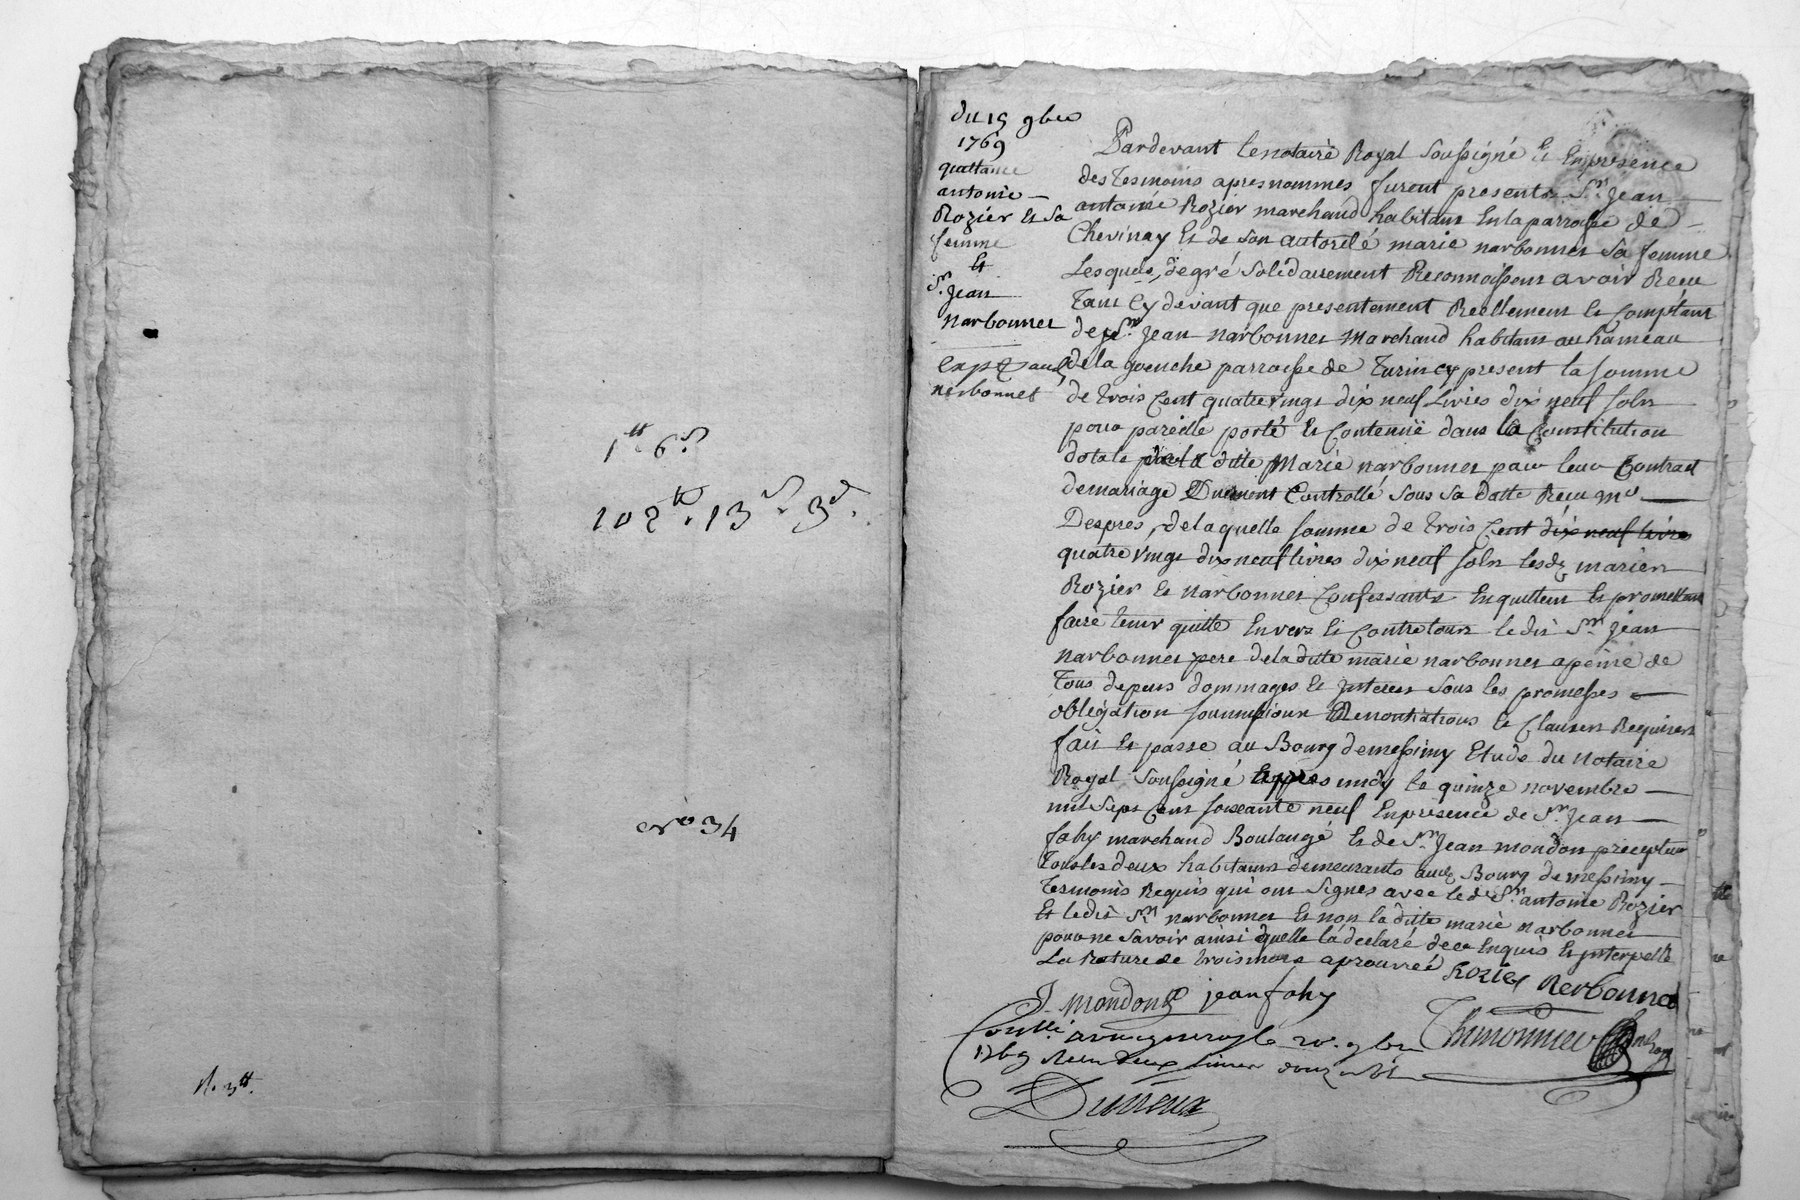 1tt 6s
102tt. 13s. 3d.
No 34
n. 3tt
du 15 9bre
1769
quittance
antoine
Rozier et sa
femme
et
Sr. Jean
narbonnet
exp aud
nerbonnet
Pardevant le notaire Royal soussigné et En presence
des Tesmoins apres nommes furent presents Sr. Jean
antoine Rozier marchand habitant En la parroisse de
Chevinay et de son autorité marie narbonnet sa femme
Lesquels, de gré solidairement Reconnoissent avoir Receu
Tant Cy devant que presentement Reellement et Comptant
de Sr. Jean narbonnet Marchand habitant au hameau
de la goenche parroisse de Turin cy present la somme
de trois Cent quatre vingt dix neuf Livres dix neuf sols
pour pareille porté et Contenuë dans la Constitution
dotale de la ditte Marie narbonnet par leur Contract
de mariage Duement Controllé sous sa datte Receu Me
Despres, de laquelle somme de trois Cent dix neuf livres
quatre vingt dix neuf livres dix neuf sols lesdt mariers
Rozier et narbonnet Confessants En quittent et promettent
faire tenir quitte Envers et Contre tous ledit Sr. Jean
narbonnet pere de la ditte marie narbonnet a peine de
Tous depens dommages et Interets sous les promesses
obligation soumissions Renontiations et Clauses Requises
fait et passé au Bourg de messimy Etude du notaire
Royal soussigné appres midy le quinze novembre
mil sept Cent soixante neuf En presence de Sr. Jean
fahy marchand Boulangé et de Sr. Jean mondon precepteur
Tous les deux habitants demeurants aud Bourg de messimy
Tesmoins Requis qui ont signes avec led Sr. antoine Rozier
Et ledit Sr. narbonnet Et non la ditte marie narbonnet
pour ne savoir ainsi quelle la declaré de ce Enquis Et Interpellé
La Rature de trois mots aprouvée
Rozier Nerbonnet
J. Mondon jean fahy
Thimonnier
Conllé a le 20. 9bre
1769 Receu deux livres douze sols